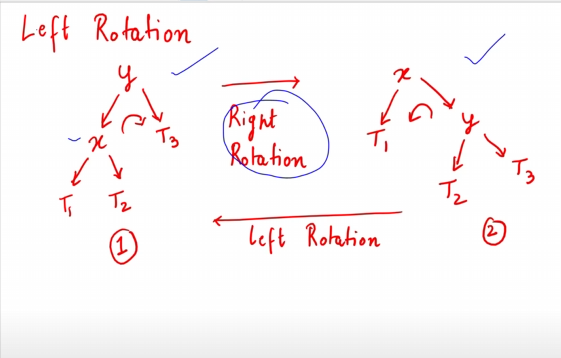 Left Rotation
y
x T3
T1 T2
1
Right
Rotation
left Rotation
x
T1 y
T2 T3
2